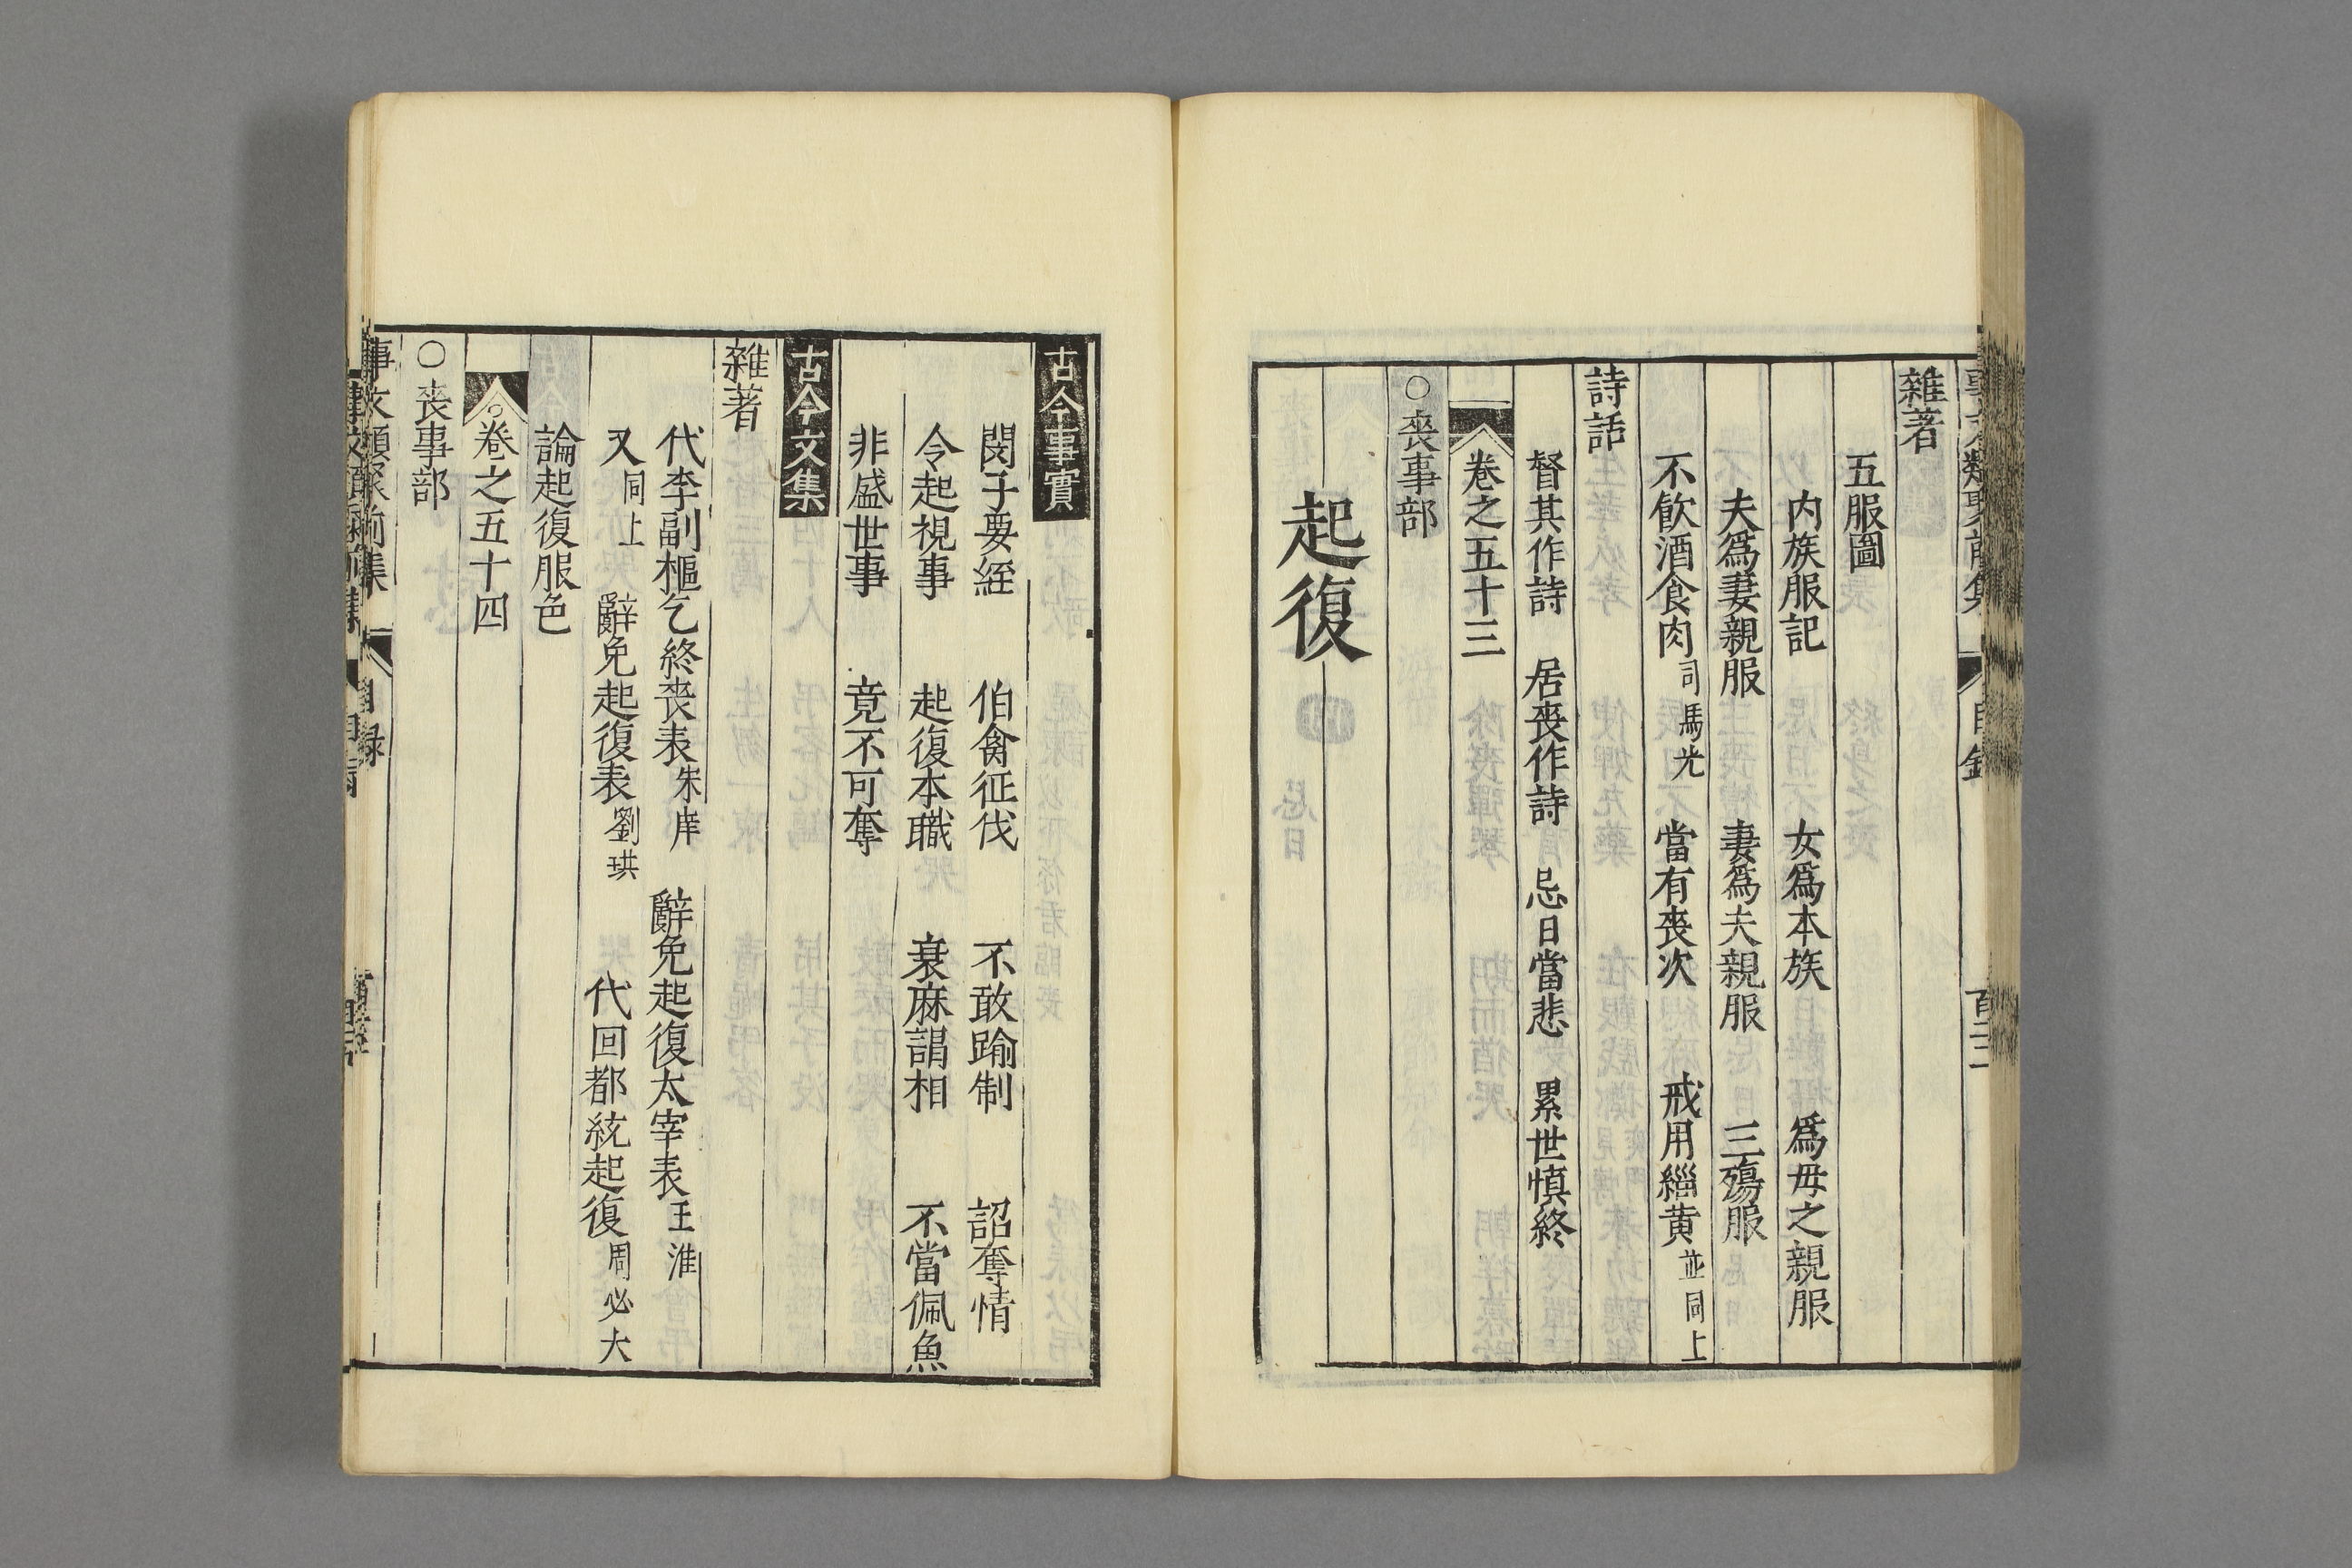 雜著
五服圖
内族服記 女爲本族 爲母之親服
夫爲妻親服 妻爲夫親服 三殤服
不飲酒食肉司馬光 當有喪次 戒用緇黄並同上
詩話
督其作詩 居喪作詩 忌日當悲 累世慎終
卷之五十三
○喪事部
起復
古今事實
閔子要絰 伯禽征伐 不敢踰制 詔奪情
令起視事 起復本職 衰麻謁相 不當佩魚
非盛世事 竟不可奪
古今文集
雜著
代李副樞乞終喪表宋庠 辭免起復太宰表王淮
又同上 辭免起復表劉珙 代回都統起復周必大
論起復服色
卷之五十四
○喪事部